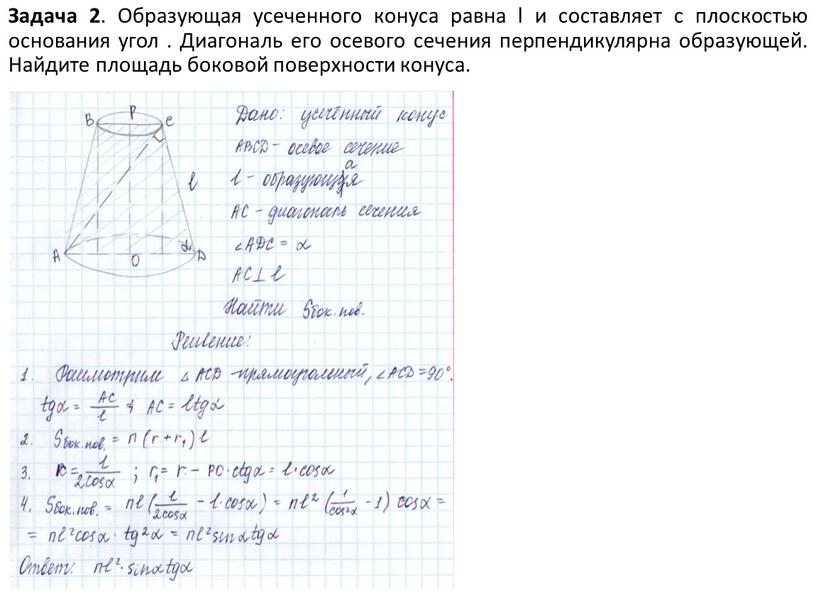 Задача 2. Образующая усеченного конуса равна l и составляет с плоскостью
основания угол . Диагональ его осевого сечения перпендикулярна образующей.
Найдите площадь боковой поверхности конуса.
B P C
l
α
A O D
Дано: усечённый конус
ABCD - осевое сечение
l - образующая
AC - диагональ сечения
∠ADC = α
AC⊥l
Найти Sбок.пов.
Решение:
1. Рассмотрим △ACD - прямоугольный, ∠ACD=90°.
tgα = AC/l ⇒ AC = l tgα
2. Sбок.пов. = π(r+r₁)l
3. R = l/2cosα ; r₁ = r - PO·ctgα = l·cosα
4. Sбок.пов. = πl(l/2cosα - l·cosα) = πl²(1/cos²α - 1) cosα =
= πl²cosα · tg²α = πl²sinαtgα
Ответ: πl²·sinαtgα